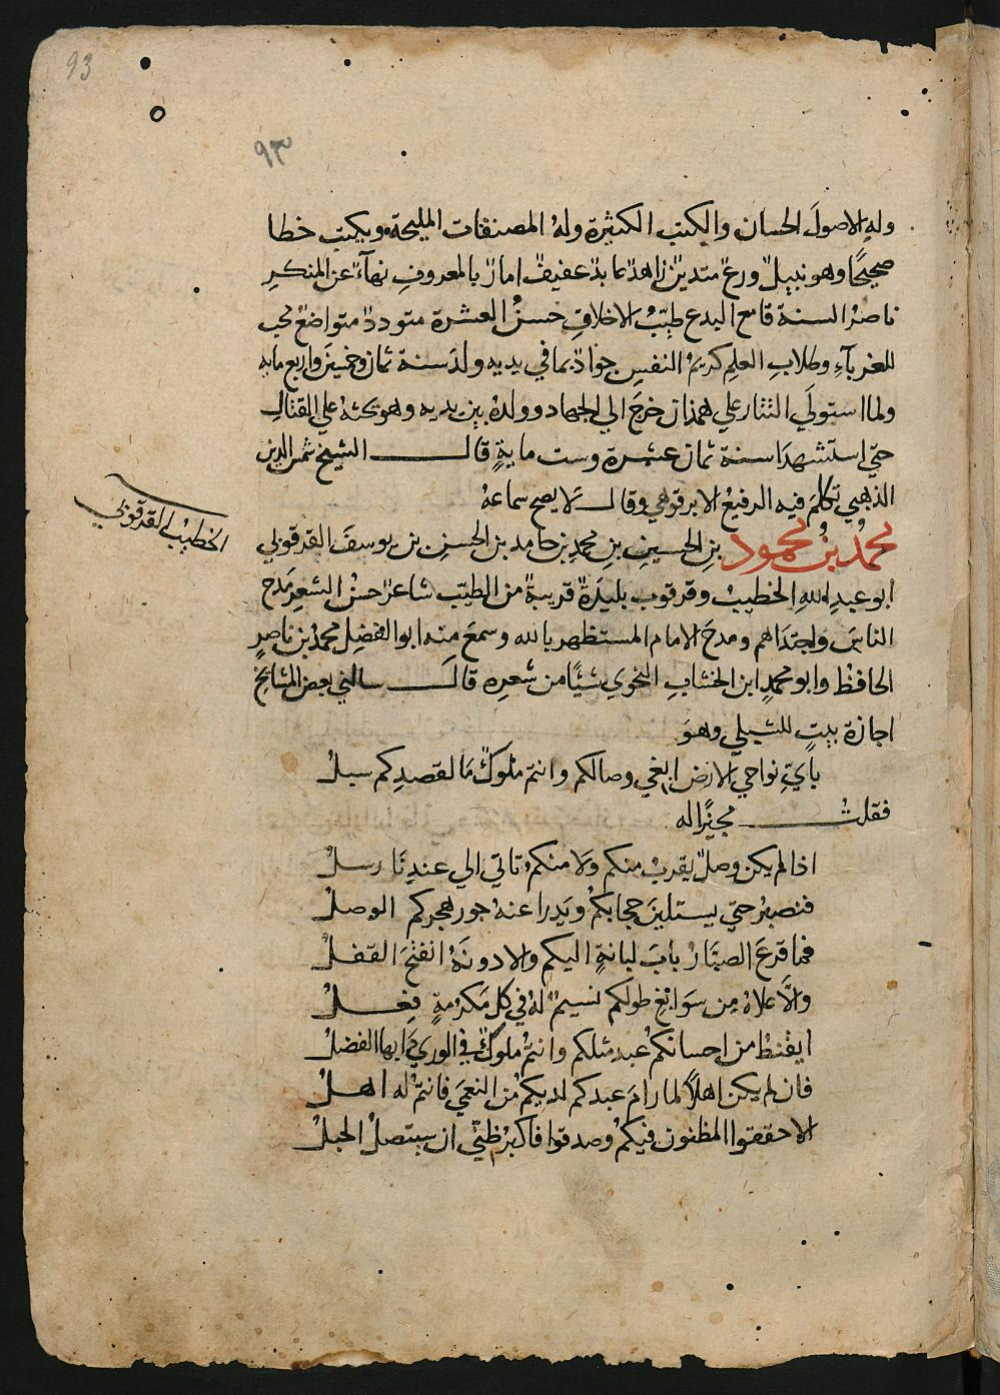 93
٩٣
وله الاصولَ الحسان والكتب الكثيرة ولهُ المصنفات المليحة ويكتب خطا
صحيحًا وهو نبيلٌ ورعٌ متدينٌ زاهدٌ عابدٌ عفيفٌ امارٌ بالمعروفِ نهآءٌ عن المنكرِ
ناصرُ السنة قامع البدع طيّبُ الاخلاقِ حسنُ العشرة متوددٌ متواضعٌ محب
للغربآءِ وطلابِ العلمِ كريمُ النفسِ جوادٌ بما في يديه ولدَ سنة ثمان وخمسينَ واربع مايه
ولما استولَي التتار علي همذان خرجَ الي الجهاد وولدهُ بين يديه وهو يحثهُ علي القتال
حتي استشهدَا سنة ثمان عشرة وست مايةٍ قال الشيخ شمس الدين
الذهبي تكلمَ فيه الرفيعُ الابرقوهي وقال لا يصح سماعهُ
محمدُ بنُ محمود بنِ الحسينِ بنِ محمدِ بن حامد بن الحسنِ بن يوسفَ القرقوبي
الخطيب القرقوبي
ابو عبدِ اللهِ الخطيبُ وقرقوب بليدَةٌ قريبةٌ من الطيّب شاعرٌ حسنُ الشعرِ مَدح
الناسَ واجتدَاهم ومدحَ الامام المستظهر بالله وسمعَ منه ابو الفضلِ محمدُ بن ناصرٍ
الحافظُ وابو محمدٍ ابن الخشابِ النحوي شيئًا من شعرِه قالَ سالني بعض المشائخ
اجازة بيتٍ للشبلي وهوَ
بايّ نواحي الارضِ ابغي وصالكم وانتم ملوكٌ مَا لقصدِكم سبلُ
فقلتُ مجيزًا له
اذا لم يكن وصلٌ يقربُ منكم ولا منكم تاتي الي عندِنَا رسلُ
فنصبرُ حتي يستلينَ حجابكمُ ويَدرا عنهُ جور هجركم الوصلُ
فما قرعَ الصبّارُ بابَ لبانةٍ اليكم والا دونَهُ انفتحَ القفلُ
والَّا علاهُ مِن سَوَابغِ طولكم نسيمٌ لهُ في كل مكرُمةٍ فِعْلُ
ايقنطُ من احسانكُم عبد مثلكم وانتم ملوكٌ في الوري دَابها الفضلُ
فان لم يكن اهلًا لما رامَ عبدكم لديكمُ من النعمَي فانتمُ له اهلُ
الا حققوا المظنون فيكمُ وصدقوا فاكبرُ ظنّي ان سيتصلُ الحبلُ